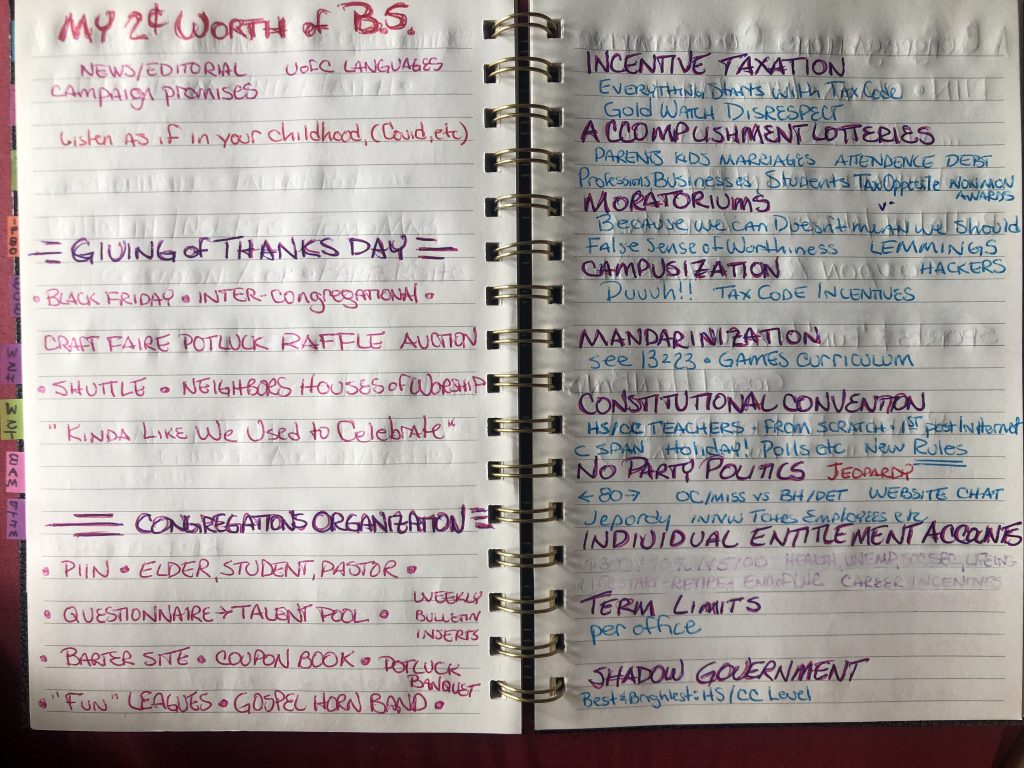 MY 2¢ WORTH of B.S.
NEWS/EDITORIAL UofC LANGUAGES
CAMPAIGN PROMISES
Listen As if in your childhood, (Covid, etc)
GIVING of THANKS DAY
• BLACK FRIDAY • INTER-CONGREGATIONAL •
CRAFT FAIRE POTLUCK RAFFLE AUCTION
• SHUTTLE • NEIGHBORS HOUSES of WORSHIP
"KINDA LIKE WE USED to CELEBRATE"
CONGREGATIONS ORGANIZATION
• PIIN • ELDER, STUDENT, PASTOR •
• QUESTIONNAIRE → TALENT POOL • WEEKLY BULLETIN INSERTS
• BARTER SITE • COUPON BOOK • POTLUCK BANQUET
• "FUN" LEAGUES • GOSPEL HORN BAND •
INCENTIVE TAXATION
EVERYTHING Starts With TAX Code
Gold WATCH DISRESPECT
ACCOMPLISHMENT LOTTERIES
PARENTS KIDS MARRIAGES ATTENDENCE DEBT
Professions Businesses, Students TAX Opposite NONMON AWARDS
MORATORIUMS
Because we can Doesn't mean we should
False Sense of Worthiness LEMMINGS
CAMPUSIZATION HACKERS
Duuuh!! TAX CODE INCENTIVES
MANDARINIZATION
see 13223 • GAMES CURRICULUM
CONSTITUTIONAL CONVENTION
HS/CC TEACHERS + FROM SCRATCH + 1ST post Internet
C SPAN Holiday! Polls etc New Rules
NO PARTY POLITICS JEOPARDY
← 80 → OC/MISS vs BH/DET WEBSITE CHAT
Jepordy INNW Tches Employees etc
INDIVIDUAL ENTITLEMENT ACCOUNTS
HEALTH, UNEMP, SOC SEC, LIFEINS
START-RETIRE+ END of LIFE CAREER INCENTIVES
TERM LIMITS
per office
SHADOW GOVERNMENT
Best & Brightest: HS/CC Level